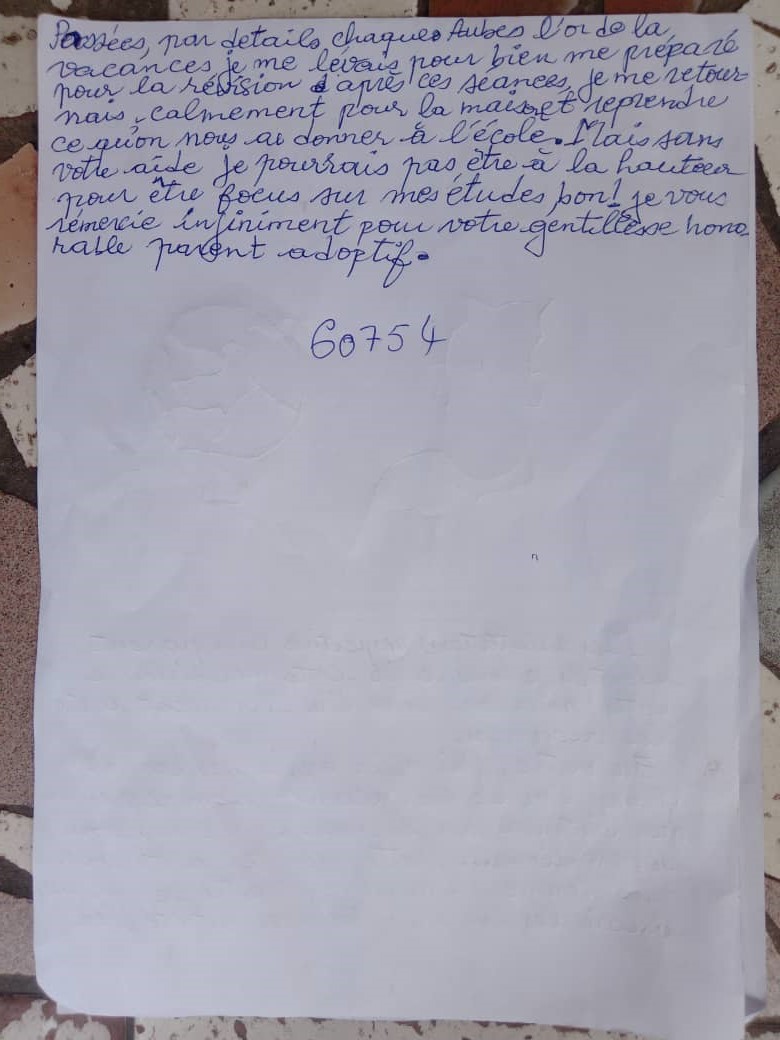 Passées, par details chaques Aubes l'or de la
vacances je me lévais pour bien me préparé
pour la révision d'après ces séances, je me retour-
nais, calmement pour la maison et reprendre
ce qu'on nous a donner à l'école. Mais sans
votre aide je pourrais pas être à la hauteur
pour être focus sur mes études bon! je vous
rémercie infiniment pour votre gentillesse hono-
rable parent adoptif.
60754